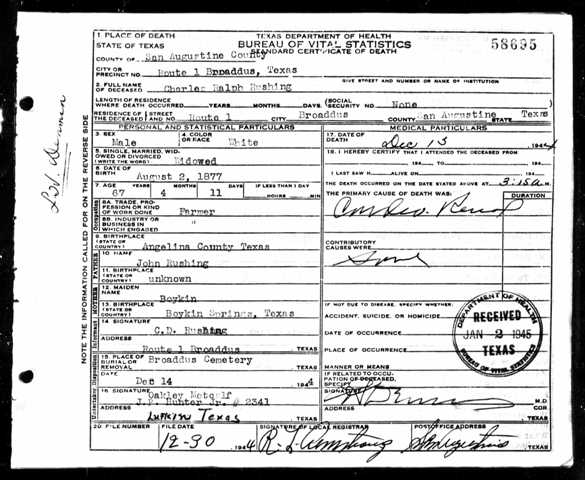 TEXAS DEPARTMENT OF HEALTH
BUREAU OF VITAL STATISTICS
STANDARD CERTIFICATE OF DEATH
58695
1 PLACE OF DEATH
STATE OF TEXAS
COUNTY OF San Augustine County
CITY OR PRECINCT NO. Route 1 Broaddus, Texas
GIVE STREET AND NUMBER OR NAME OF INSTITUTION
2. FULL NAME OF DECEASED Charles Ralph Rushing
LENGTH OF RESIDENCE WHERE DEATH OCCURRED YEARS MONTHS DAYS (SOCIAL SECURITY NO. None
RESIDENCE OF THE DECEASED (STREET AND NO. Route 1 Broaddus COUNTY San Augustine STATE Texas
PERSONAL AND STATISTICAL PARTICULARS
3. SEX
Male
4. COLOR OR RACE
White
5. SINGLE, MARRIED, WIDOWED OR DIVORCED (WRITE THE WORD)
Widowed
6. DATE OF BIRTH
August 2, 1877
7. AGE YEARS MONTHS DAYS IF LESS THAN 1 DAY
67 4 11 HOURS MIN.
8A. TRADE, PROFESSION OR KIND OF WORK DONE
Farmer
8B. INDUSTRY OR BUSINESS IN WHICH ENGAGED
"
9. BIRTHPLACE (STATE OR COUNTRY)
Angelina County Texas
FATHER
10. NAME
John Rushing
11. BIRTHPLACE (STATE OR COUNTRY)
unknown
MOTHER
12. MAIDEN NAME
Boykin
13. BIRTHPLACE (STATE OR COUNTRY)
Boykin Springs, Texas
Informant
14. SIGNATURE
C.D. Rushing
ADDRESS
Route 1 Broaddus TEXAS
15. PLACE OF BURIAL OR REMOVAL
Broaddus Cemetery TEXAS
DATE
Dec 14 1944
16. SIGNATURE
Oakley Metcalf
J.F. Hunter Jr. # 2341
ADDRESS
Lufkin Texas TEXAS
MEDICAL PARTICULARS
17. DATE OF DEATH
Dec 13 1944
18. I HEREBY CERTIFY THAT I ATTENDED THE DECEASED FROM
194 TO 194
I LAST SAW H ALIVE ON 194
THE DEATH OCCURRED ON THE DATE STATED ABOVE AT 3:15a M.
THE PRIMARY CAUSE OF DEATH WAS:
DURATION
CONTRIBUTORY CAUSES WERE:
IF NOT DUE TO DISEASE, SPECIFY WHETHER:
ACCIDENT, SUICIDE, OR HOMICIDE
DATE OF OCCURRENCE
PLACE OF OCCURRENCE
MANNER OR MEANS
IF RELATED TO OCCUPATION OF DECEASED, SPECIFY
SIGNATURE
M.D.
COR
ADDRESS TEXAS
DEPARTMENT OF HEALTH
RECEIVED
JAN 2 1945
TEXAS
BUREAU OF VITAL STATISTICS
20 FILE NUMBER
FILE DATE
12-30 1944
SIGNATURE OF LOCAL REGISTRAR
R L Armstrong
POSTOFFICE ADDRESS
San Augustine TEXAS
NOTE INFORMATION CALLED FOR ON THE REVERSE SIDE